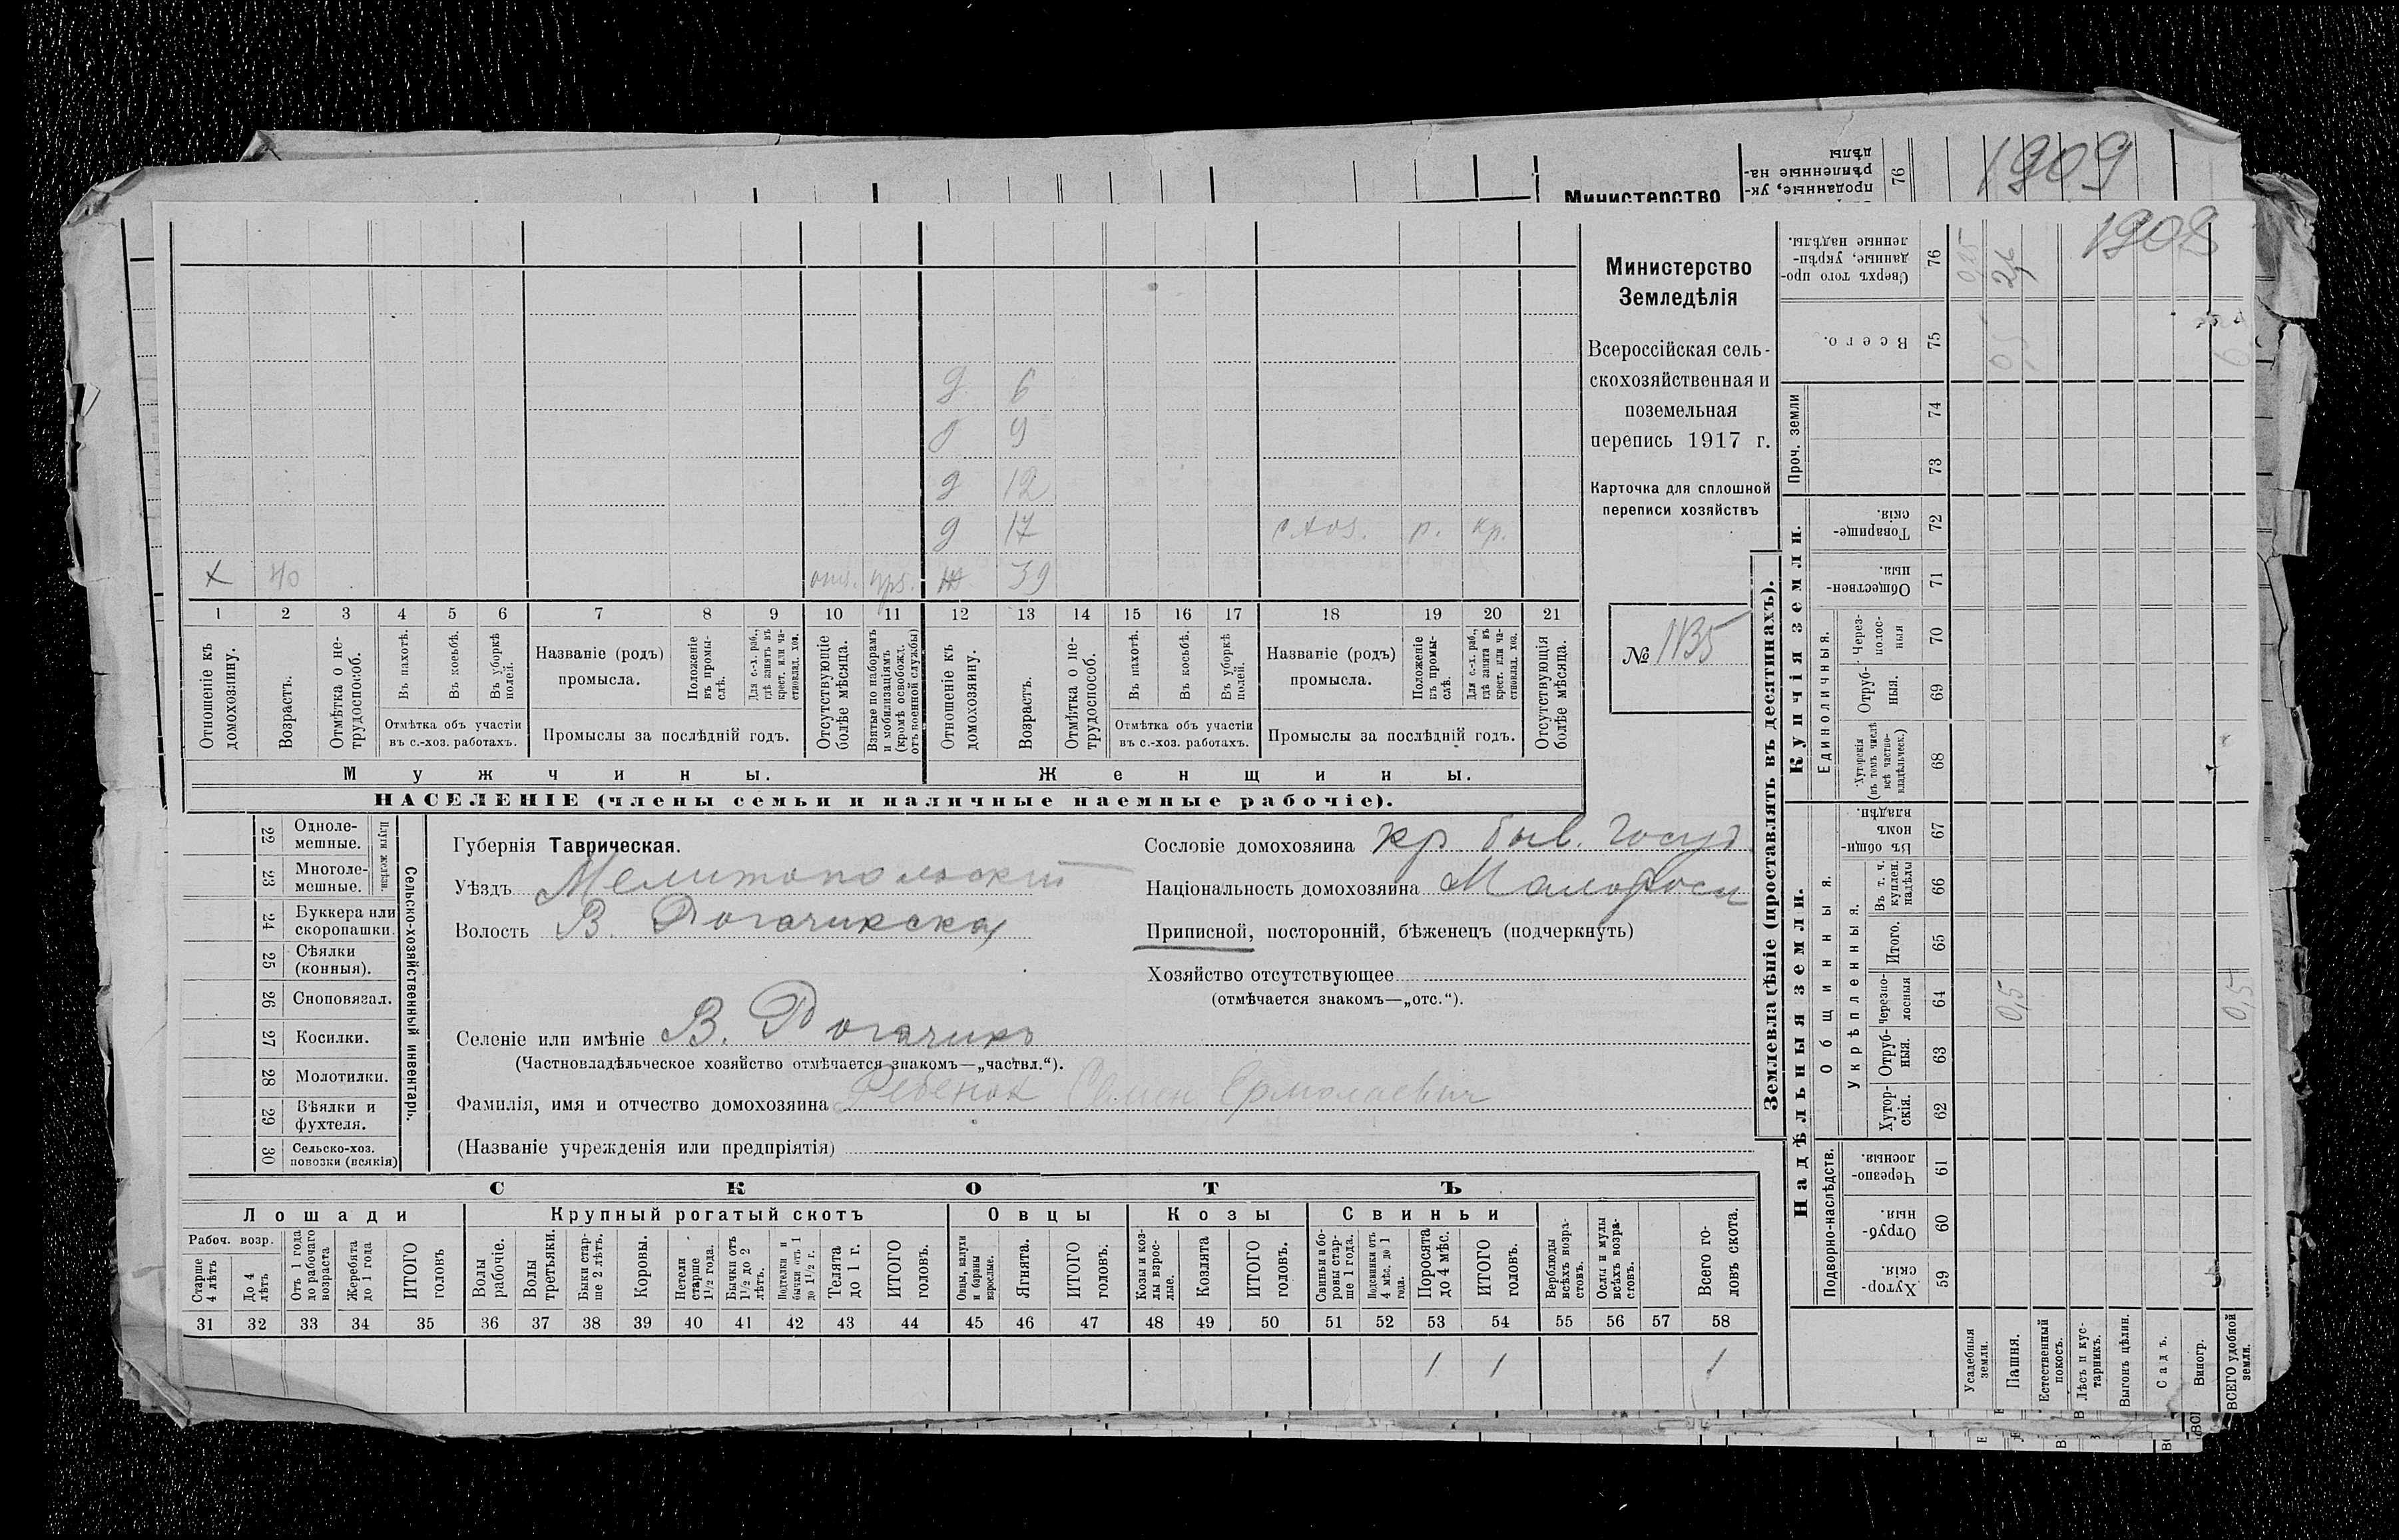 1909
Министерство
проданные, ук-
рѣпленные на-
дѣлы
76
1908
Министерство
Земледѣлія
Всероссійская сель-
скохозяйственная и
поземельная
перепись 1917 г.
Карточка для сплошной
переписи хозяйствъ
№ 1135
д 6
д 9
д 12
д 17 с хоз. р. кр.
х 40 отс. ж 39
1 2 3 4 5 6 7 8 9 10 11 12 13 14 15 16 17 18 19 20 21
Отношеніе къ домохозяину.
Возрастъ.
Отмѣтка о не-трудоспособ.
Въ пахотѣ.
Въ косьбѣ.
Въ уборкѣ полей.
Отмѣтка объ участіи
въ с.-хоз. работахъ.
Названіе (родъ)
промысла.
Положеніе въ промы-слѣ.
Для с.-х. раб., гдѣ занятъ въ крест. или ча-стновлад. хоз.
Промыслы за послѣдній годъ.
Отсутствующіе болѣе мѣсяца.
Взятые по наборамъ и мобилизаціямъ (кромѣ освобожд. отъ военной службы)
Отношеніе къ домохозяину.
Возрастъ.
Отмѣтка о не-трудоспособ.
Въ пахотѣ.
Въ косьбѣ.
Въ уборкѣ полей.
Отмѣтка объ участіи
въ с.-хоз. работахъ.
Названіе (родъ)
промысла.
Положеніе въ промы-слѣ.
Для с.-х. раб., гдѣ занята въ крест. или ча-стновлад. хоз.
Промыслы за послѣдній годъ.
Отсутствующія болѣе мѣсяца.
Мужчины.
Женщины.
НАСЕЛЕНІЕ (члены семьи и наличные наемные рабочіе).
Сельско-хозяйственный инвентарь.
Плуги желѣзн.
22 Одноле-мешные.
23 Многоле-мешные.
24 Буккера или скоропашки.
25 Сѣялки (конныя).
26 Сноповязал.
27 Косилки.
28 Молотилки.
29 Вѣялки и фухтеля.
30 Сельско-хоз. повозки (всякія)
Губернія Таврическая.
Уѣздъ Мелитопольскій
Волость В. Рогачикская
Селеніе или имѣніе В. Рогачикъ
(Частновладѣльческое хозяйство отмѣчается знакомъ—„частвл.“).
Фамилія, имя и отчество домохозяина Ребенок Семен Ермолаевич
(Названіе учрежденія или предпріятія)
Сословіе домохозяина кр. быв. Госуд
Національность домохозяина Малоросс
Приписной, посторонній, бѣженецъ (подчеркнуть)
Хозяйство отсутствующее
(отмѣчается знакомъ—„отс.“).
СКОТЪ
Лошади
Крупный рогатый скотъ
Овцы
Козы
Свиньи
Рабоч. возр.
Старше 4 лѣтъ
До 4 лѣтъ
Отъ 1 года до рабочаго возраста
Жеребята до 1 года
ИТОГО головъ
Волы рабочіе.
Волы третьяки.
Быки стар-ше 2 лѣтъ.
Коровы.
Нетели старше 1½ года.
Бычки отъ 1½ до 2 лѣтъ.
Подтелки и бычки отъ 1 до 1½ г.
Телята до 1 г.
ИТОГО головъ.
Овцы, валухи и бараны взрослые.
Ягнята.
ИТОГО головъ.
Козы и коз-лы взрос-лые.
Козлята
ИТОГО головъ.
Свиньи и бо-ровы стар-ше 1 года.
Подсвинки отъ 4 мѣс. до 1 года.
Поросята до 4 мѣс.
ИТОГО головъ.
Верблюды всѣхъ возра-стовъ.
Ослы и мулы всѣхъ возра-стовъ.
Всего го-ловъ скота.
31 32 33 34 35 36 37 38 39 40 41 42 43 44 45 46 47 48 49 50 51 52 53 54 55 56 57 58
1 1 1
Землевладѣніе (проставлять въ десятинахъ).
Надѣльныя земли.
Купчія земли.
Проч. земли
Подворно-наслѣдств.
Общинныя.
Укрѣпленныя.
Единоличныя.
Сверхъ того про-данные, укрѣп-ленные надѣлы. 76
Всего. 75
74
73
Товарище-скія. 72
Обществен-ныя. 71
Через-полос-ныя 70
Отруб-ныя. 69
Хуторскія (въ томъ числѣ всѣ частно-владѣльческ.) 68
Въ общи-номъ владѣн. 67
Въ т. ч. куплен. надѣлы 66
Итого. 65
Черезпо-лосныя 64
Отруб-ныя. 63
Хутор-скія. 62
Черезпо-лосныя. 61
Отруб-ныя. 60
Хутор-скія. 59
0,5
0,5
Усадебныя земли.
Пашня.
Естественный покосъ.
Лѣсъ и кус-тарникъ.
Выгонъ цѣлин.
Садъ.
Виногр.
ВСЕГО удобной земли.